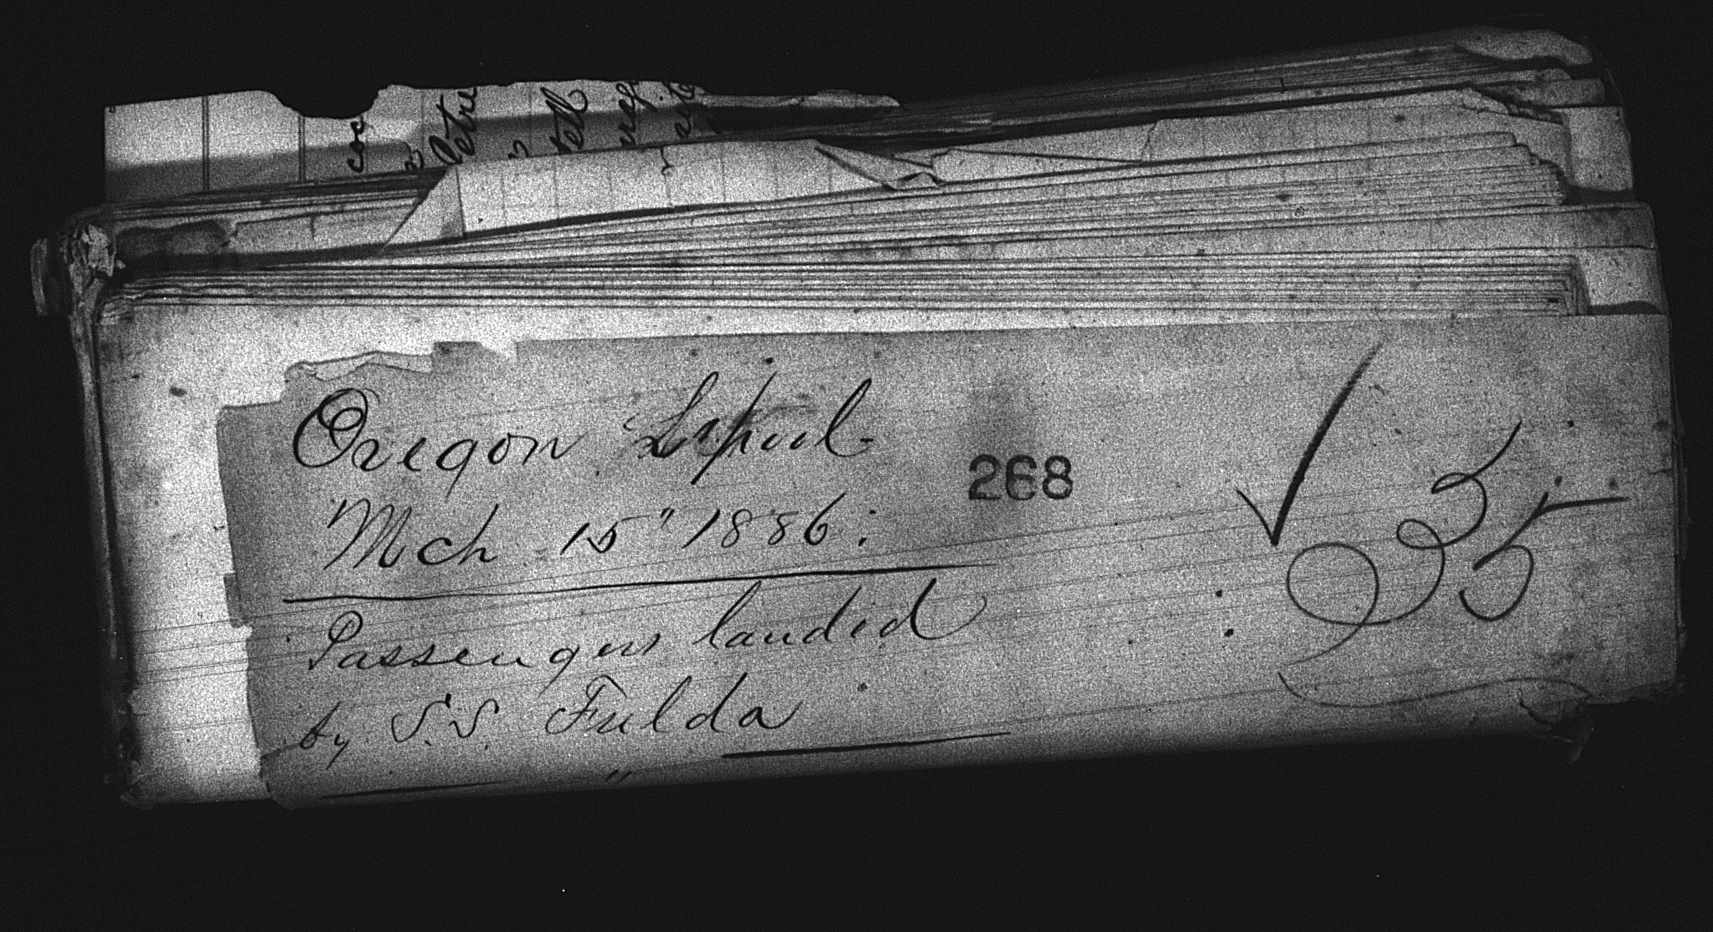 Oregon L'pool
268
Mch 15" 1886.
35
Passengers landed
by S.S. Fulda
"